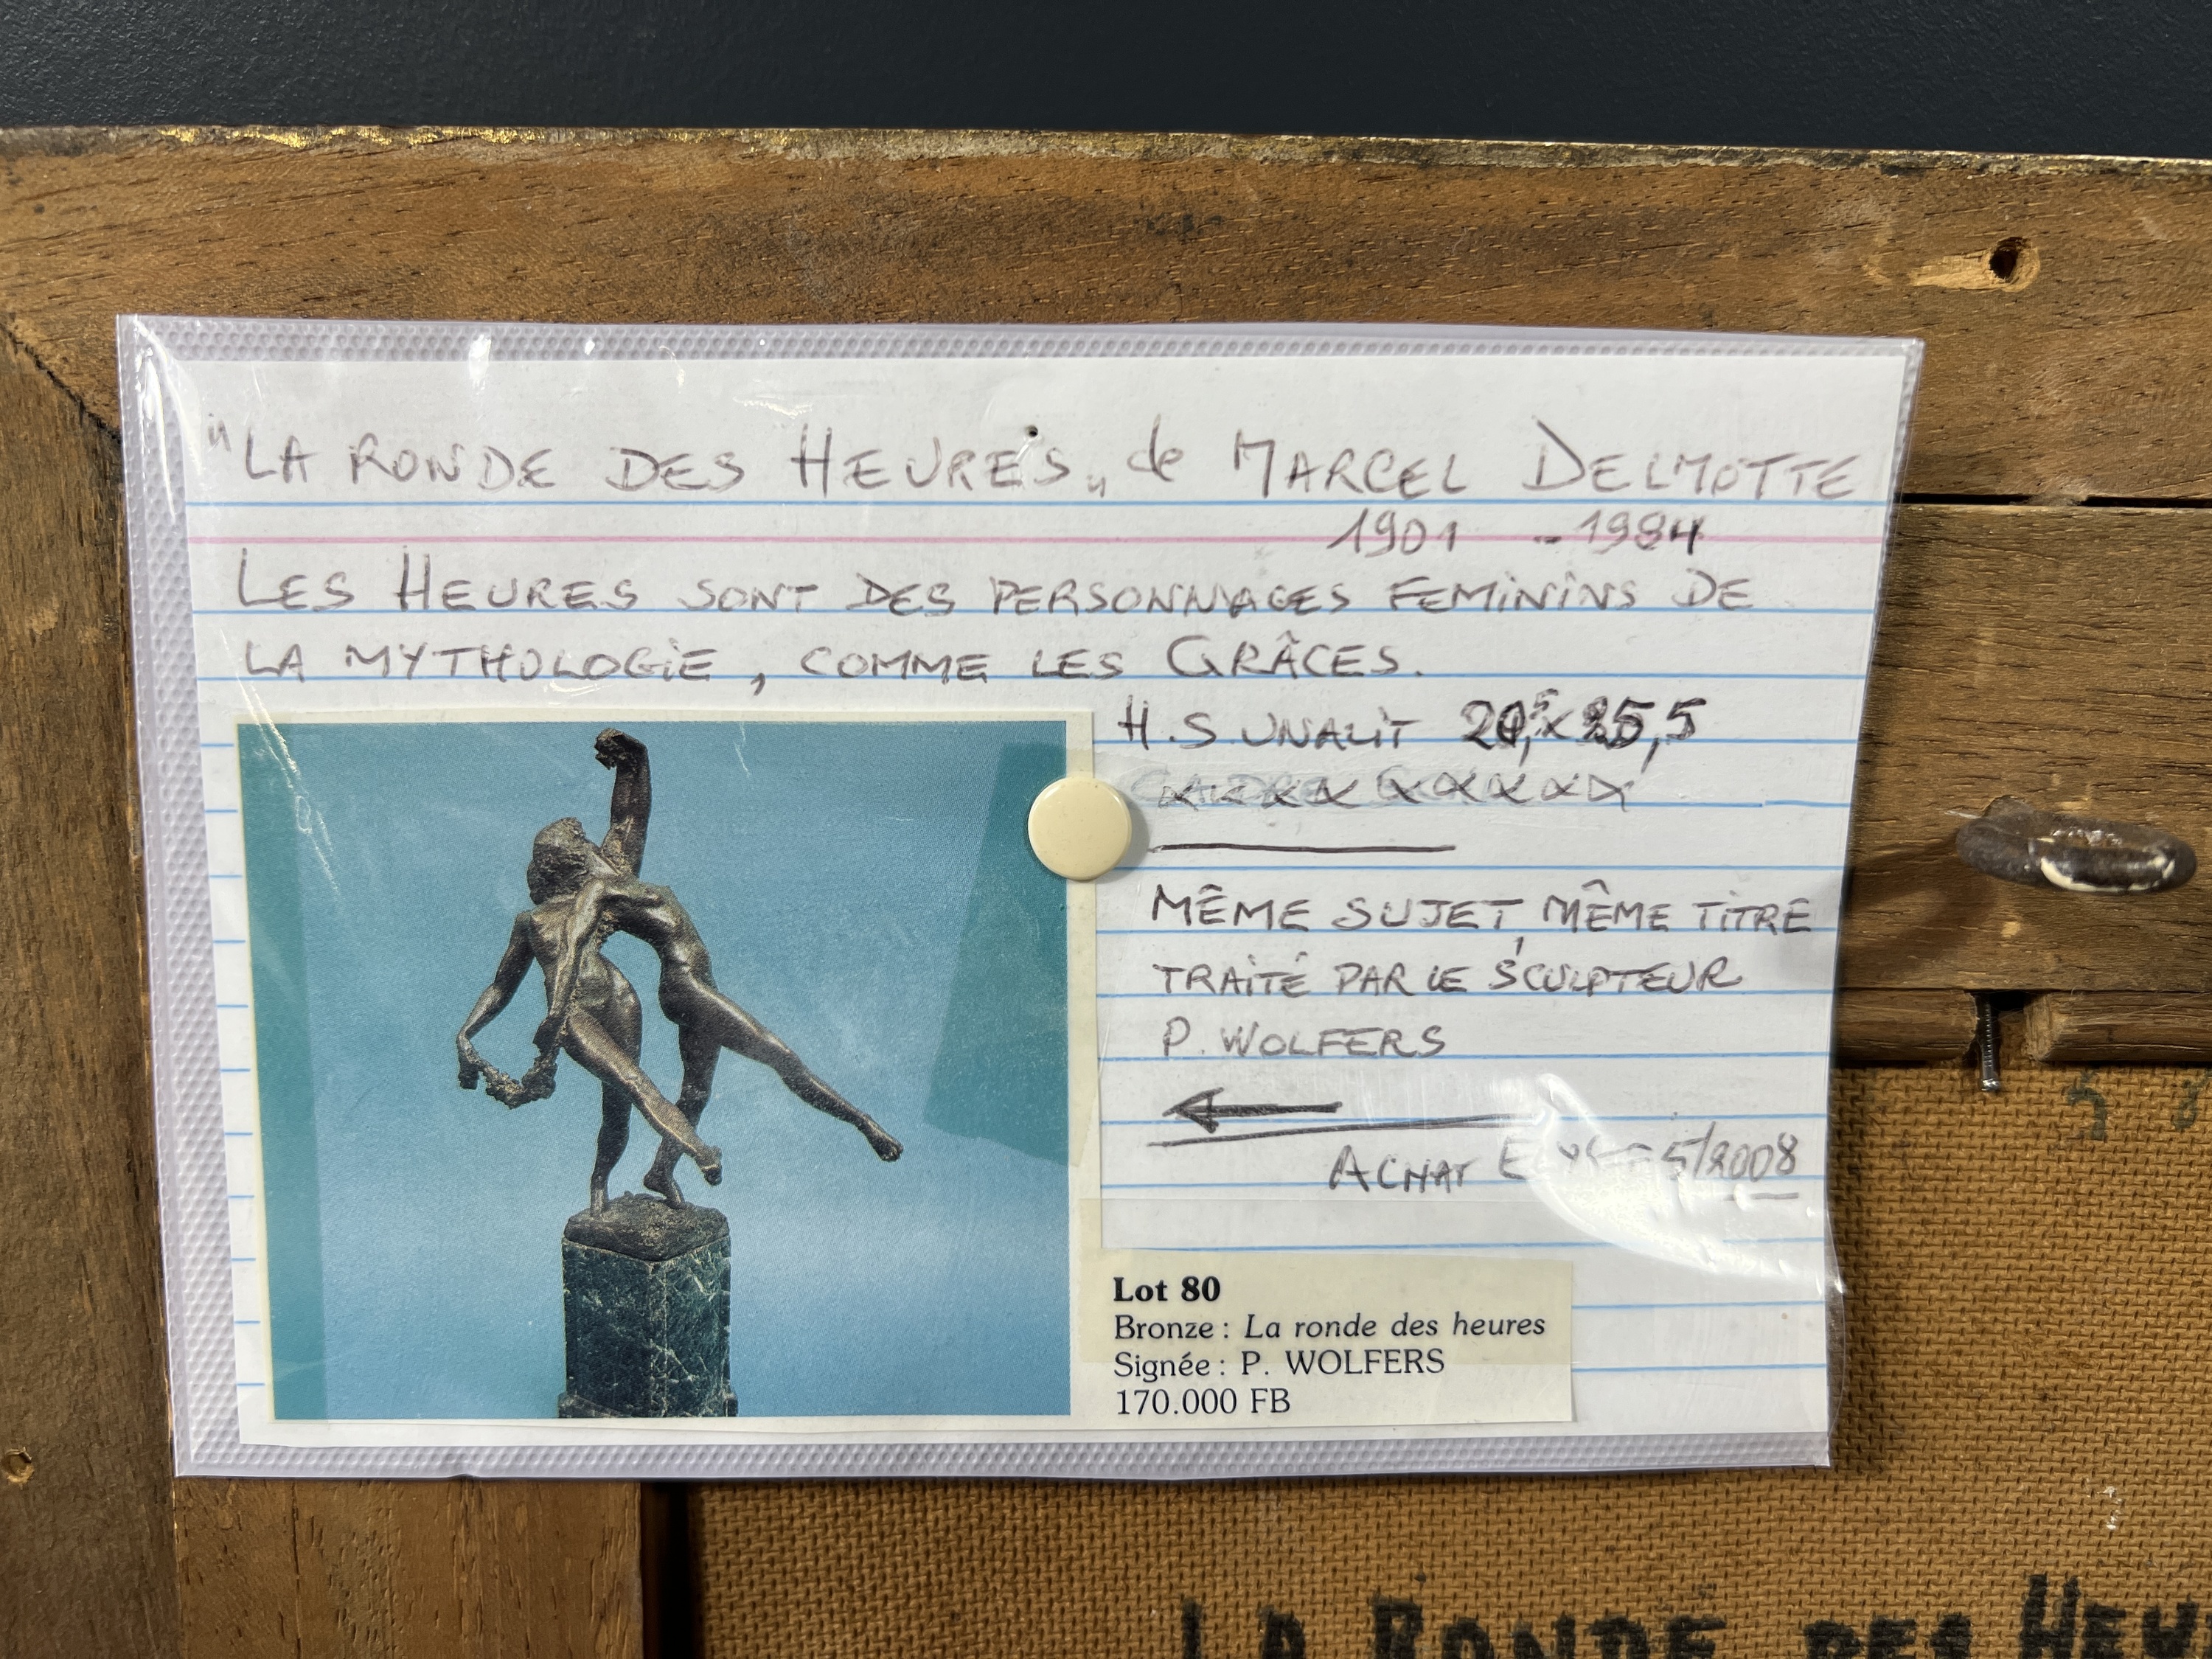 "LA RONDE DES HEURES" de MARCEL DELMOTTE
1901 - 1984
LES HEURES SONT DES PERSONNAGES FEMININS DE
LA MYTHOLOGIE, COMME LES GRÂCES.
H.S. UNALIT 20,5 x 25,5
MÊME SUJET, MÊME TITRE
TRAITÉ PAR LE SCULPTEUR
P. WOLFERS
ACHAT 5/2008
Lot 80
Bronze : La ronde des heures
Signée : P. WOLFERS
170.000 FB
LA RONDE DES HEU